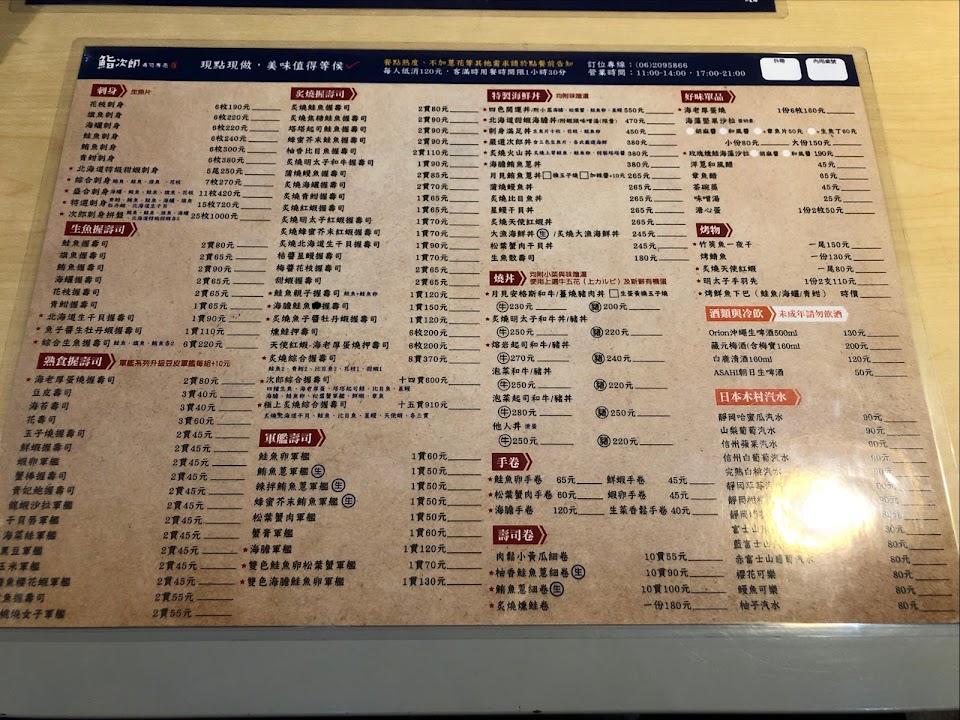 鮨次郎
現點現做，美味值得等候
餐點熟度、不加蔥花等其他需求請於點餐前告知
每人低消120元，客滿時用餐時間限1小時30分
訂位專線：(06)2095866
營業時間：11:00-14:00，17:00-21:00
外帶
內用桌號
刺身 生魚片
花枝刺身 6枚190元
旗魚刺身 6枚220元
海鱺刺身 6枚220元
鮭魚刺身 6枚240元
鮪魚刺身 6枚300元
青魽刺身 6枚380元
北海道特級甜蝦刺身 5尾250元
綜合刺身 鮪魚、鮭魚、旗魚、花枝 7枚270元
盛合刺身 11枚420元
特選刺身 15枚720元
次郎刺身拼盤 25枚1000元
生魚握壽司
鮭魚握壽司 2貫80元
旗魚握壽司 2貫65元
鮪魚握壽司 2貫90元
海鱺握壽司 2貫65元
花枝握壽司 2貫65元
青魽握壽司 1貫65元
北海道生干貝握壽司 1貫90元
魚子醬生牡丹蝦握壽司 1貫110元
綜合生魚握壽司 6貫220元
熟食握壽司 軍艦系列升級豆皮軍艦每組+10元
海老厚蛋燒握壽司 2貫80元
豆皮壽司 3貫40元
海苔壽司 3貫40元
花壽司 3貫60元
玉子燒握壽司 2貫45元
鮮蝦握壽司 2貫45元
蝦卵軍艦 2貫45元
蟹棒握壽司 2貫45元
貴妃鮑握壽司 2貫45元
龍蝦沙拉軍艦 2貫45元
干貝唇軍艦 2貫45元
海菜絲軍艦 2貫45元
黑豆軍艦 2貫45元
玉米軍艦 2貫45元
魚櫻花蝦軍艦 2貫45元
魚握壽司 2貫55元
燒女子軍艦 2貫55元
炙燒握壽司
炙燒鮭魚握壽司 2貫80元
炙燒焦糖鮭魚握壽司 2貫90元
塔塔起司鮭魚握壽司 2貫90元
蜂蜜芥末鮭魚握壽司 2貫90元
柚香比目魚握壽司 2貫110元
炙燒明太子和牛握壽司 1貫90元
蒲燒鰻魚握壽司 2貫85元
炙燒海鱺握壽司 2貫70元
炙燒青魽握壽司 1貫65元
炙燒紅蝦握壽司 1貫65元
炙燒明太子紅蝦握壽司 1貫70元
炙燒蜂蜜芥末紅蝦握壽司 1貫70元
炙燒北海道生干貝握壽司 1貫90元
梅醬花枝握壽司 2貫65元
甜蝦握壽司 2貫65元
鮭魚親子握壽司 鮭魚+鮭魚卵 1貫120元
海膽鮭魚握壽司 1貫150元
炙燒魚子醬牡丹蝦握壽司 1貫120元
燻鮭押壽司 6枚200元
天使紅蝦-海老厚蛋燒押壽司 6枚200元
炙燒綜合握壽司 8貫370元
次郎綜合握壽司 十四貫600元
極上炙燒綜合握壽司 十五貫910元
軍艦壽司
鮭魚卵軍艦 1貫60元
鮪魚蔥軍艦 生 1貫50元
辣拌鮪魚蔥軍艦 生 1貫50元
蜂蜜芥末鮪魚軍艦 生 1貫50元
松葉蟹肉軍艦 1貫50元
蟹膏軍艦 1貫60元
海膽軍艦 1貫120元
雙色鮭魚卵松葉蟹軍艦 1貫70元
雙色海膽鮭魚卵軍艦 1貫130元
特製海鮮丼 均附味噌湯
四色開運丼 550元
北海道甜蝦海膽丼 470元
刺身滿足丼 450元
嚴選次郎丼 380元
炙燒火山丼 380元
海膽鮪魚蔥丼 380元
月見鮪魚蔥丼 □加辣醬+10元 265元
蒲燒鰻魚丼 265元
炙燒比目魚丼 265元
星鰻干貝丼 265元
炙燒天使紅蝦丼 265元
大漁海鮮丼 生 /炙燒大漁海鮮丼 245元
松葉蟹肉干貝丼 245元
生魚散壽司 180元
燒丼 均附小菜與味噌湯
使用上選牛五花（上カルビ）及新鮮有機蛋
月見安格斯和牛/薑燒豬肉丼 □生蛋黃換玉子燒
牛230元 豬200元
炙燒明太子和牛丼/豬丼
牛250元 豬220元
熔岩起司和牛/豬丼
牛270元 豬240元
泡菜和牛/豬丼
牛250元 豬220元
泡菜起司和牛/豬丼
牛280元 豬250元
他人丼 滑蛋
牛250元 豬220元
手卷
鮭魚卵手卷 65元 鮮蝦手卷 45元
松葉蟹肉手卷 60元 蝦卵手卷 45元
海膽手卷 120元 生菜香鬆手卷 40元
壽司卷
肉鬆小黃瓜細卷 10貫55元
柚香鮭魚蔥細卷 生 10貫90元
鮪魚蔥細卷 生 10貫100元
炙燒燻鮭卷 一份180元
好味單品
海老厚蛋燒 1份6枚160元
海藻堅果沙拉
胡麻醬 和風醬 +章魚片50元 +生魚丁80元
小份80元 大份150元
玫瑰燻鮭海藻沙拉 胡麻醬 和風醬 190元
洋蔥和風醋 45元
章魚醋 65元
茶碗蒸 45元
味噌湯 25元
溏心蛋 1份2枚50元
烤物
竹筴魚一夜干 一尾150元
烤鯖魚 一份130元
炙燒天使紅蝦 一尾80元
明太子手羽先 1份2支110元
烤鮮魚下巴（鮭魚/海鱺/青魽） 時價
酒類與冷飲 未成年請勿飲酒
Orion沖繩生啤酒500ml 130元
藏元梅酒(含梅實)160ml 200元
白鹿清酒160ml 120元
ASAHI朝日生啤酒 50元
日本木村汽水
靜岡哈蜜瓜汽水 90元
山梨葡萄汽水 90元
信州蘋果汽水
信州白葡萄汽水
完熟白桃汽水
富士山
藍富士山 80元
赤富士山葡萄汽水 80元
櫻花可樂 80元
鰻魚可樂 80元
柚子汽水 80元